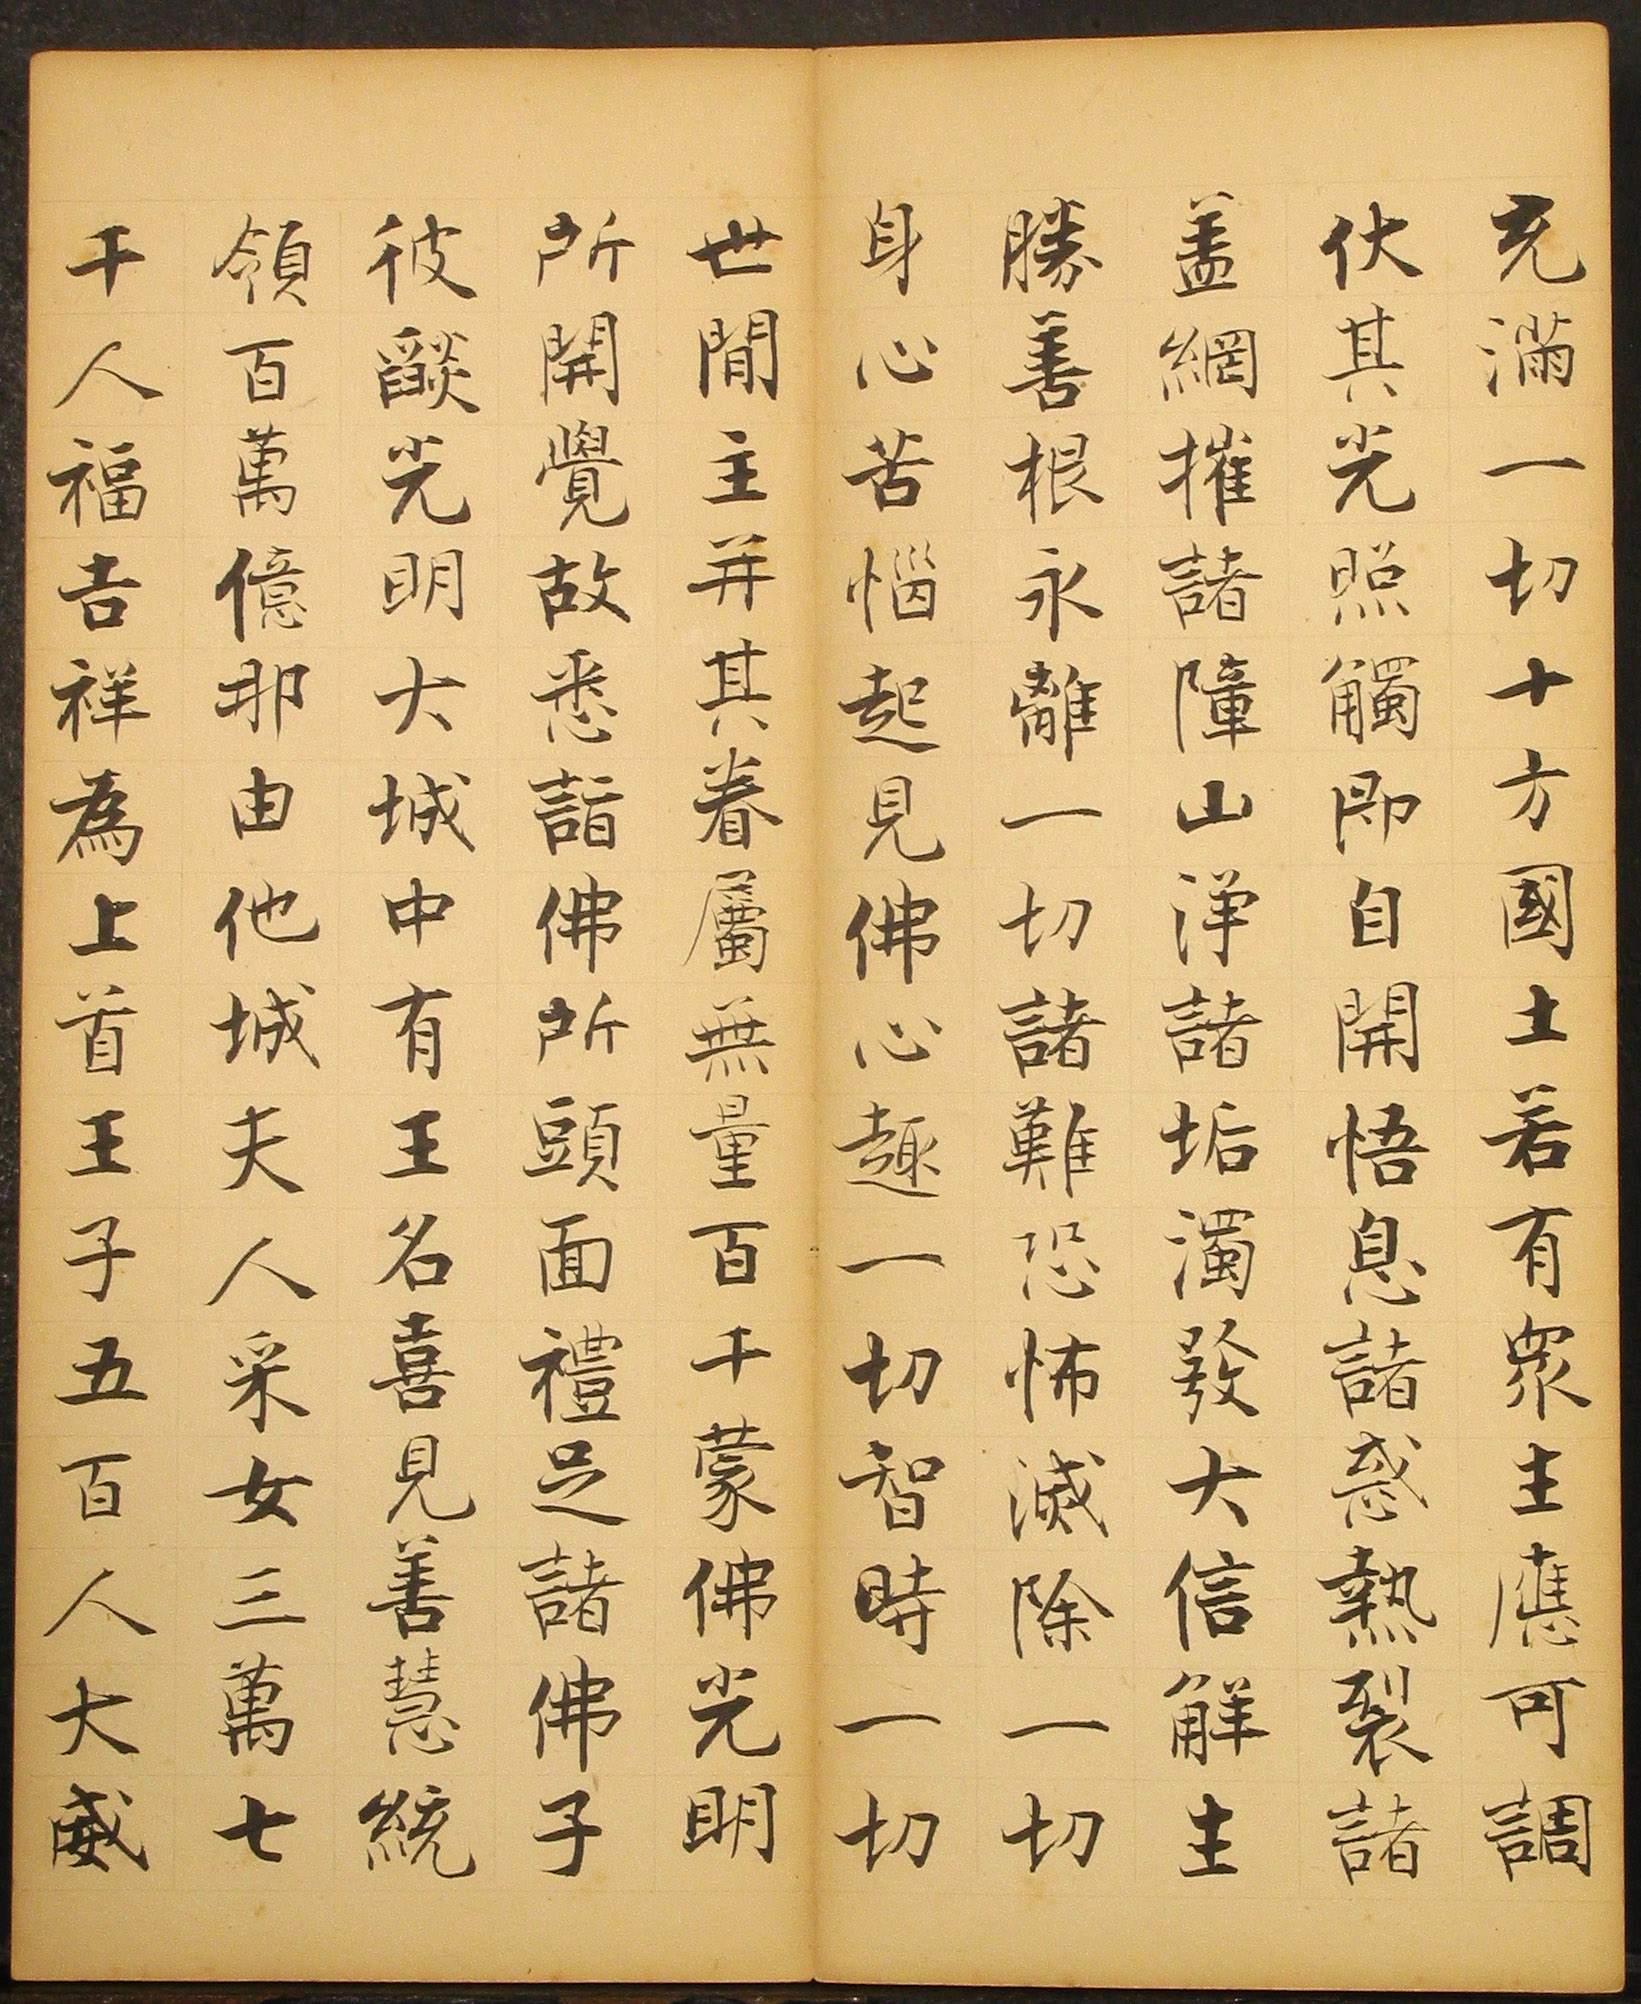 充滿一切十方國土若有衆生應可調
伏其光照觸即自開悟息諸惑熱裂諸
盖網摧諸障山淨諸垢濁發大信解生
勝善根永離一切諸難恐怖滅除一切
身心苦惱起見佛心趣一切智時一切
世間主并其眷屬無量百千蒙佛光明
所開覺故悉詣佛所頭面禮足諸佛子
彼燄光明大城中有王名喜見善慧統
領百萬億那由他城夫人采女三萬七
千人福吉祥為上首王子五百人大威